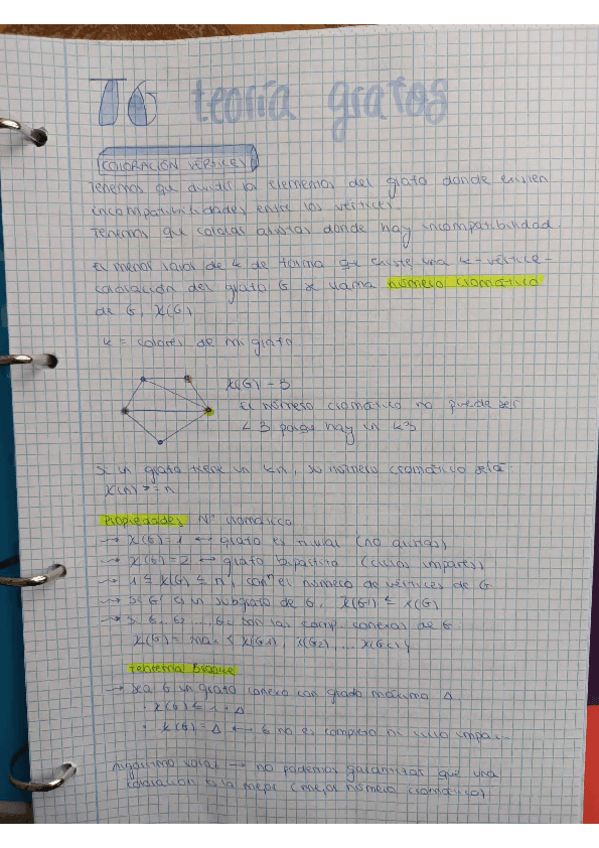 T6 teoría grafos
COLORACIÓN VÉRTICES
Tenemos que dividir los elementos del grafo donde existen
incompatibilidades entre los vértices.
Tenemos que colorar aristas donde hay incompatibilidad.
El menor valor de k de forma que existe una k-vértice-
coloración del grafo G se llama número cromático
de G, χ(G)
k = colores de mi grafo
χ(G) = 3
El número cromático no puede ser
< 3 porque hay un k3
Si un grafo tiene un kn, su número cromático será:
χ(n) >= n
Propiedades Nº cromático
→ χ(G)=1 ↔ grafo es trivial (no aristas)
→ χ(G)=2 ↔ grafo bipartito (ciclos impares)
→ 1 ≤ χ(G) ≤ n, con n el número de vértices de G
→ Si G' es un subgrafo de G, χ(G') ≤ χ(G)
→ Si G₁ G₂ ..., son las comp. conexas de G:
χ(G) = max { χ(G1), χ(G2), ... χ(Gk) }
Teorema Brooke
→ Sea G un grafo conexo con grado máximo Δ
· χ(G) ≤ 1 + Δ
· χ(G) = Δ ← G no es completo ni ciclo impar
Algoritmo voraz → no podemos garantizar que una
coloración es la mejor (mejor número cromático)